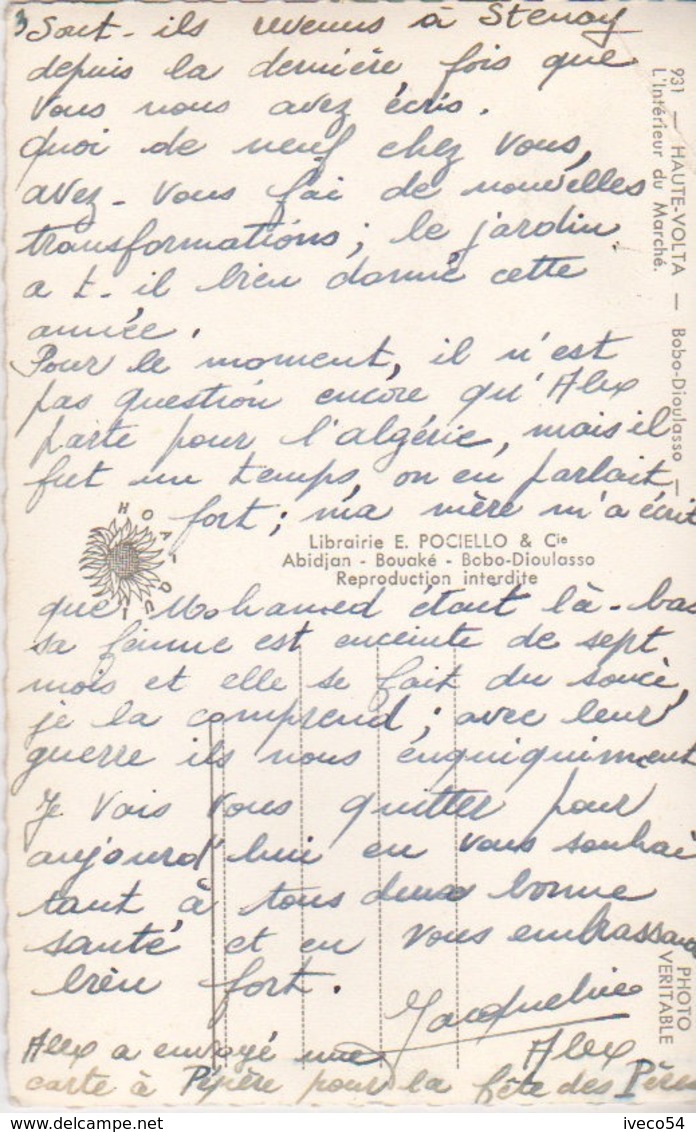 3 Sont-ils revenus à Stenay
depuis la dernière fois que
vous nous avez écris.
Quoi de neuf chez vous,
avez-vous fai de nouvelles
transformations; le jardin
a t-il bien donné cette
année.
Pour le moment, il n'est
pas question encore qu'Alex
parte pour l'algérie, mais il
fut un temps, on en parlait
fort; ma mère m'a écrit
HOA-QUI
Librairie E. POCIELLO & Cie
Abidjan - Bouaké - Bobo-Dioulasso
Reproduction interdite
que Mohamed était là-bas
sa femme est enceinte de sept
mois et elle se fait du souci,
je la comprend; avec leur
guerre ils nous enquiquinent
Je vais vous quitter pour
aujourd'hui en vous souhai
tant à tous deux bonne
santé et en vous embrassant
bien fort.
Jacqueline
Alex
Alex a envoyé une
carte à Pépère pour la fête des Pères
931 — HAUTE-VOLTA — Bobo-Dioulasso —
L'Intérieur du Marché.
PHOTO
VERITABLE
iveco54